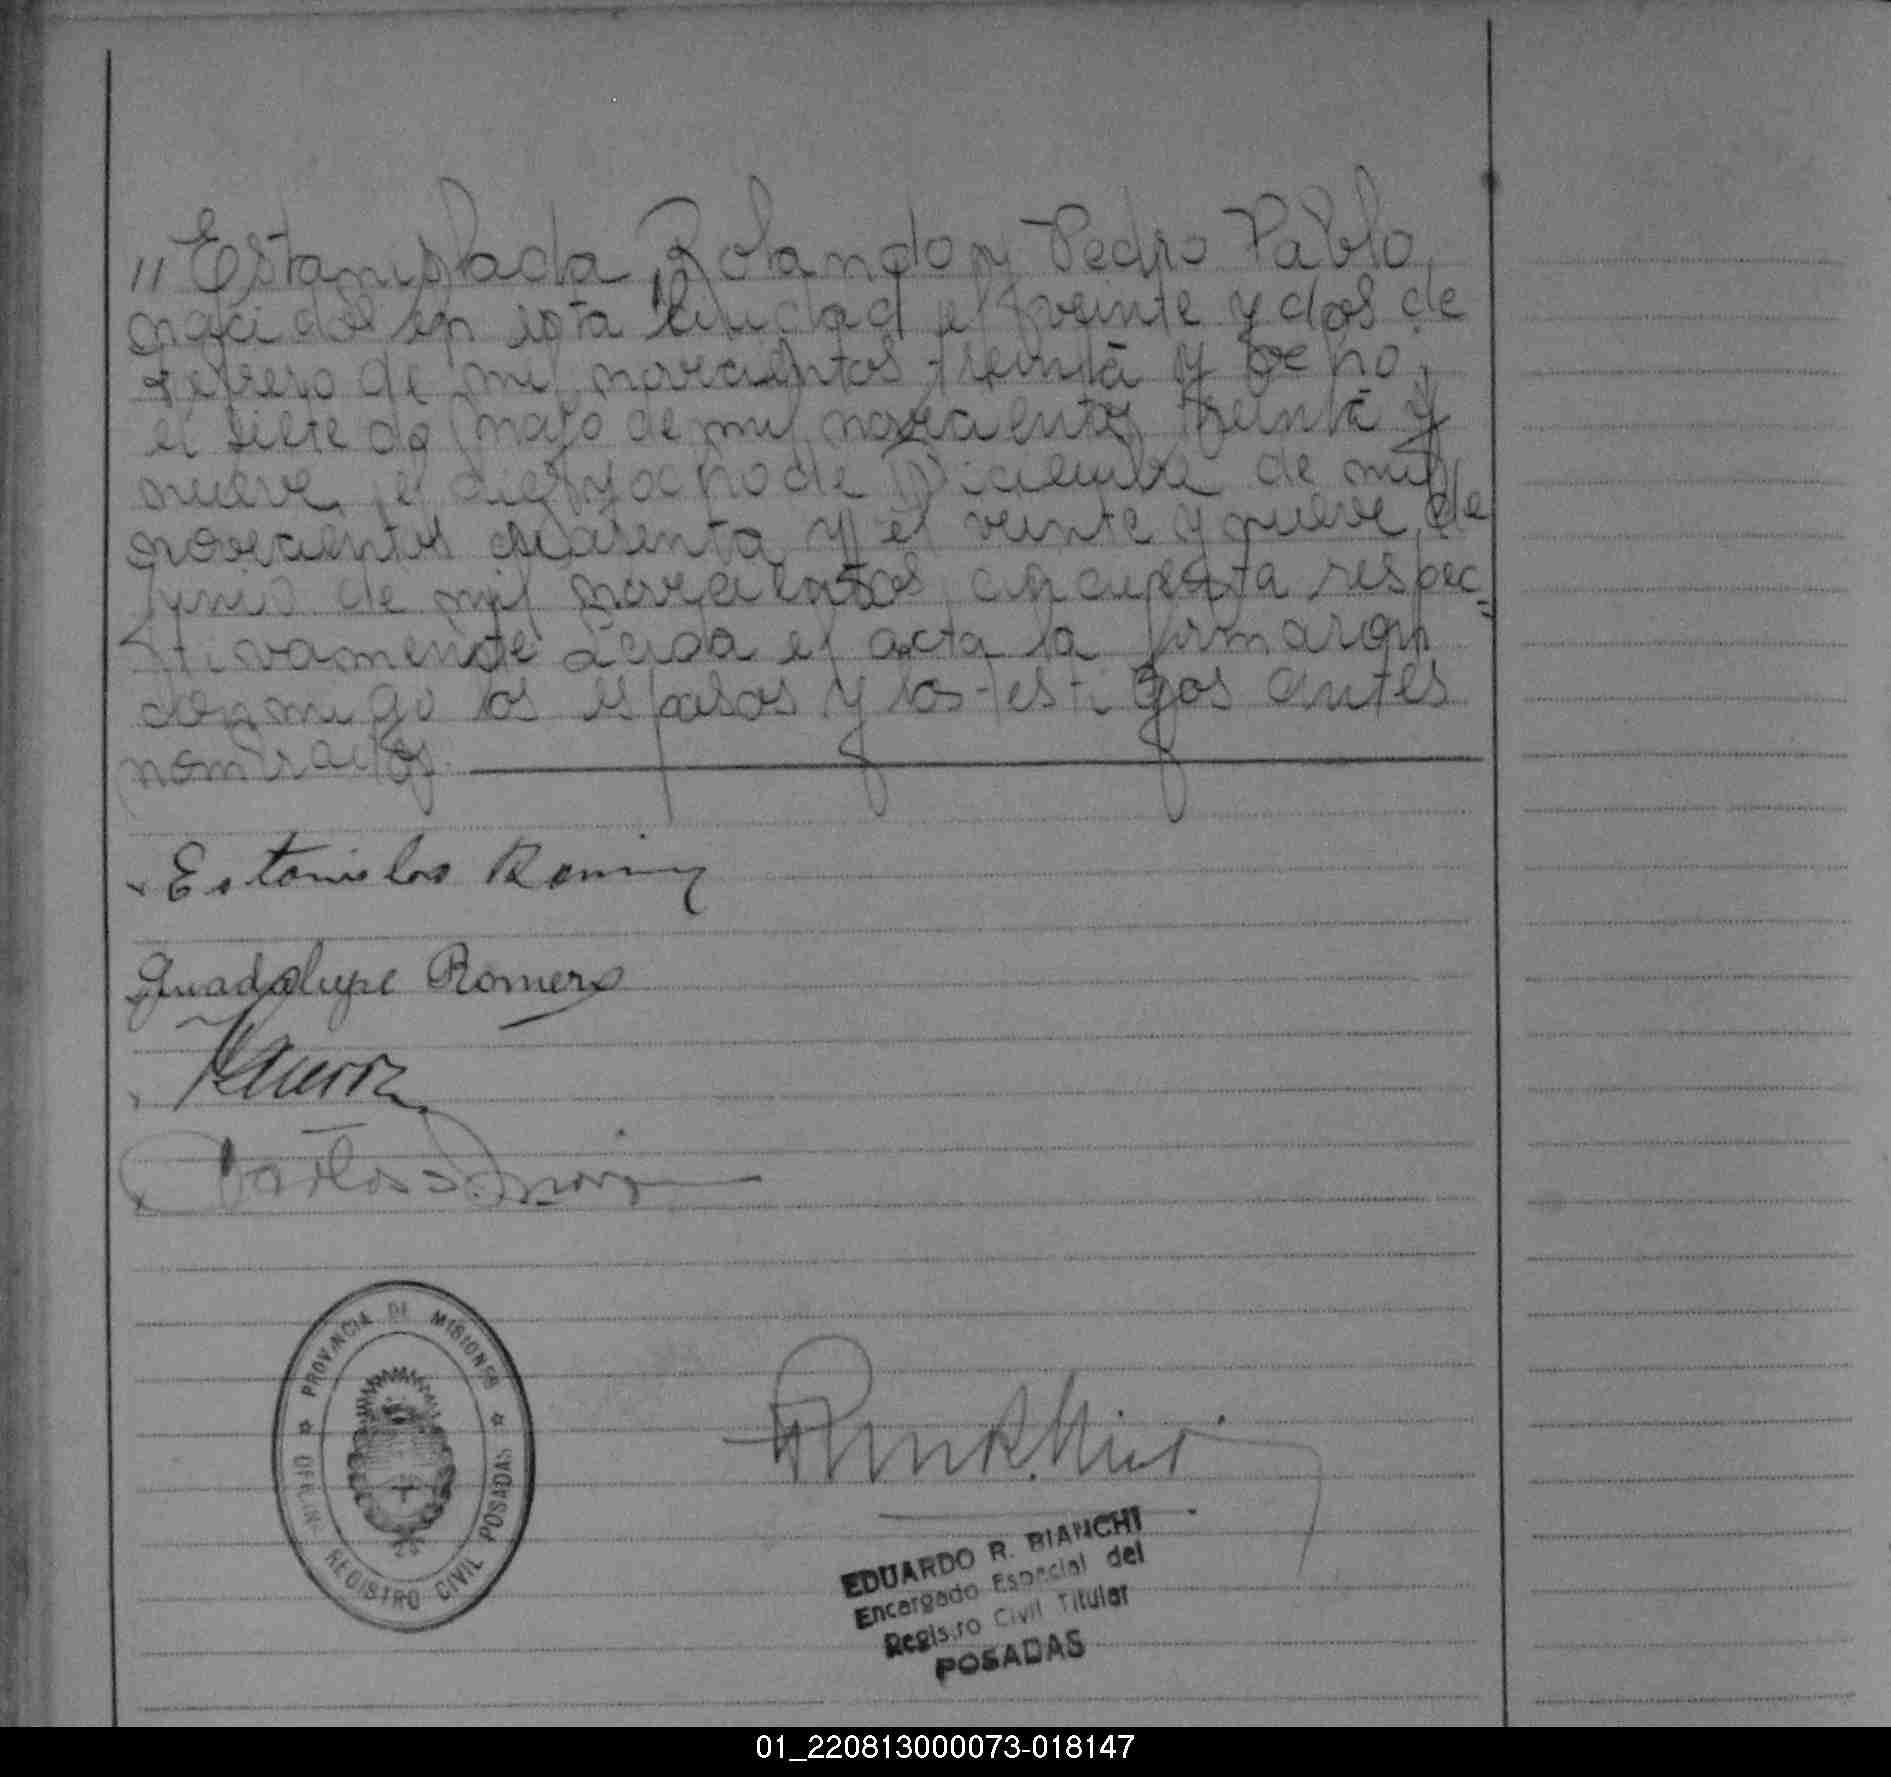 " Estanislada, Rolando y Pedro Pablo,
nacidos en esta ciudad el veinte y dos de
Febrero de mil novecientos treinta y ocho,
el siete de Mayo de mil novecientos treinta y
nueve, el diez y ocho de Diciembre de mil
novecientos cuarenta y el veinte y nueve de
Junio de mil novecientos cincuenta respec=
tivamente Leida el acta la firmaron
conmigo los esposos y los testigos antes
nombrados.
Estanislao
Guadalupe Romero
Carlos
PROVINCIA DE MISIONES
OFICINA REGISTRO CIVIL POSADAS
EDUARDO R. BIANCHI
Encargado Especial del
Registro Civil Titular
POSADAS
01_220813000073-018147